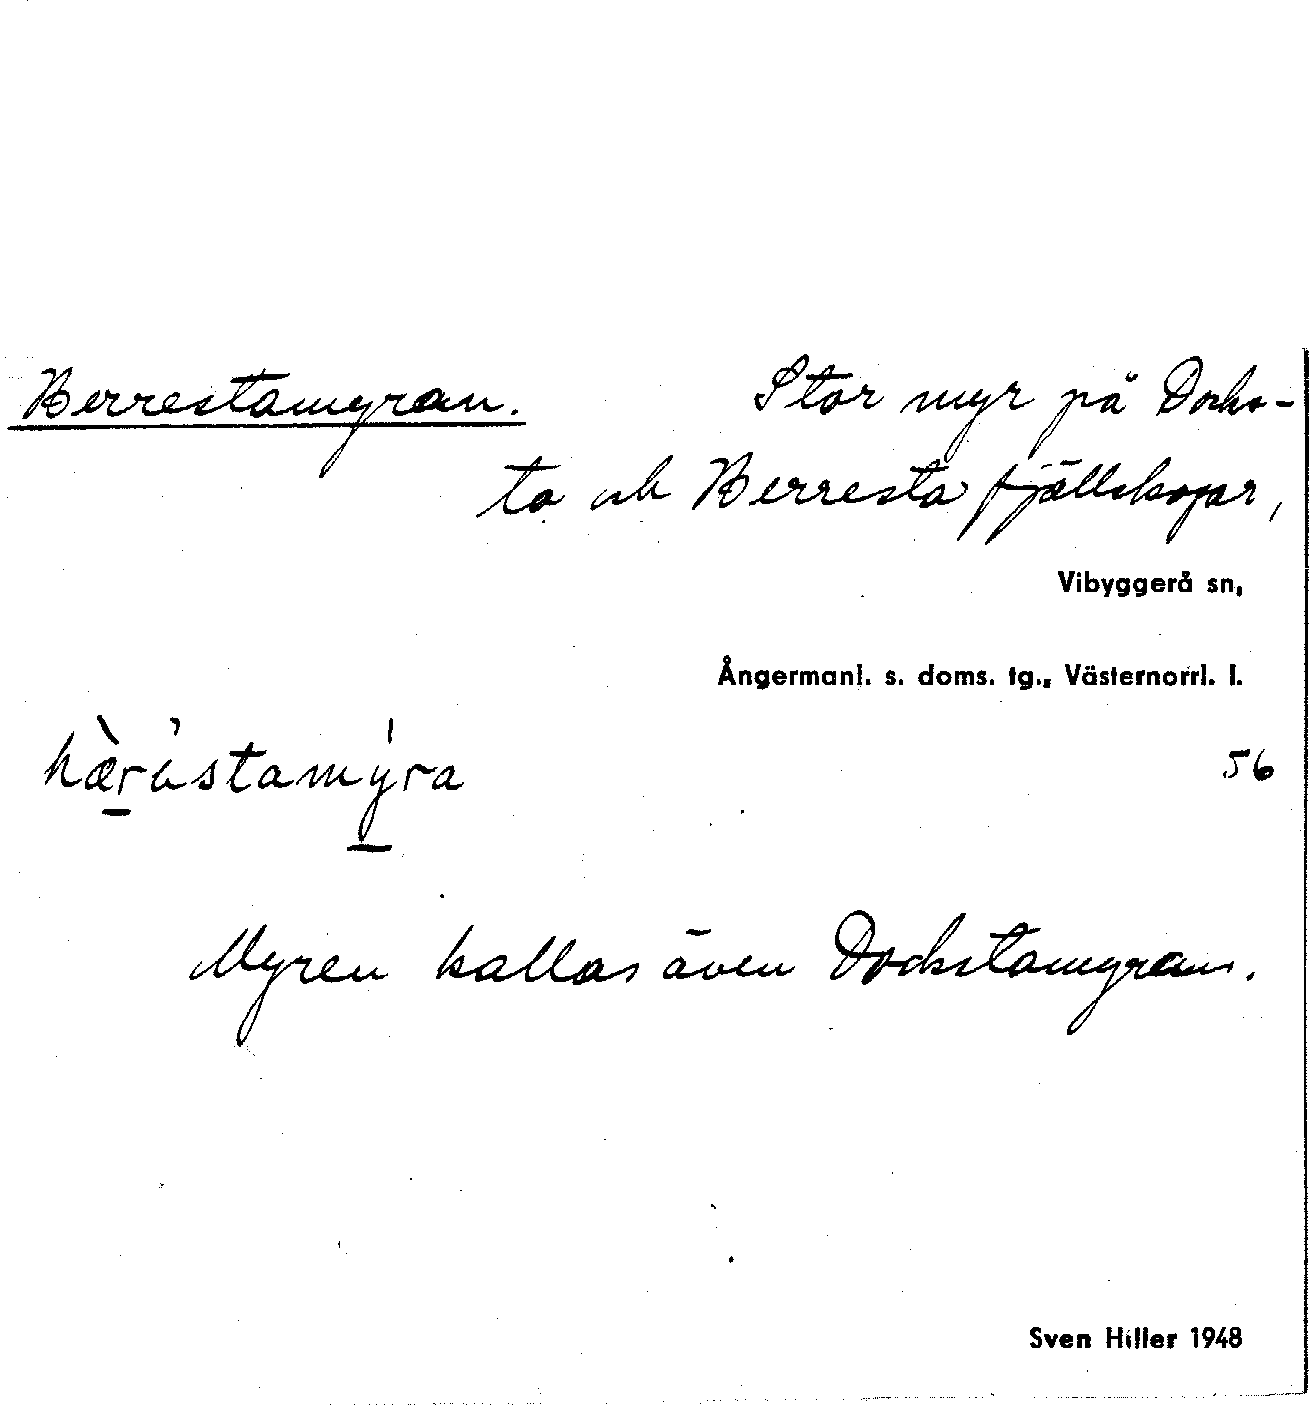 Berrestamyran. Stor myr på Docks-
ta och Berresta fjällskogar,
Vibyggerå sn,
Ångermanl. s. doms. tg., Västernorrl. l.
56
Myren kallas även Dockstamyran.
Sven Hiller 1948